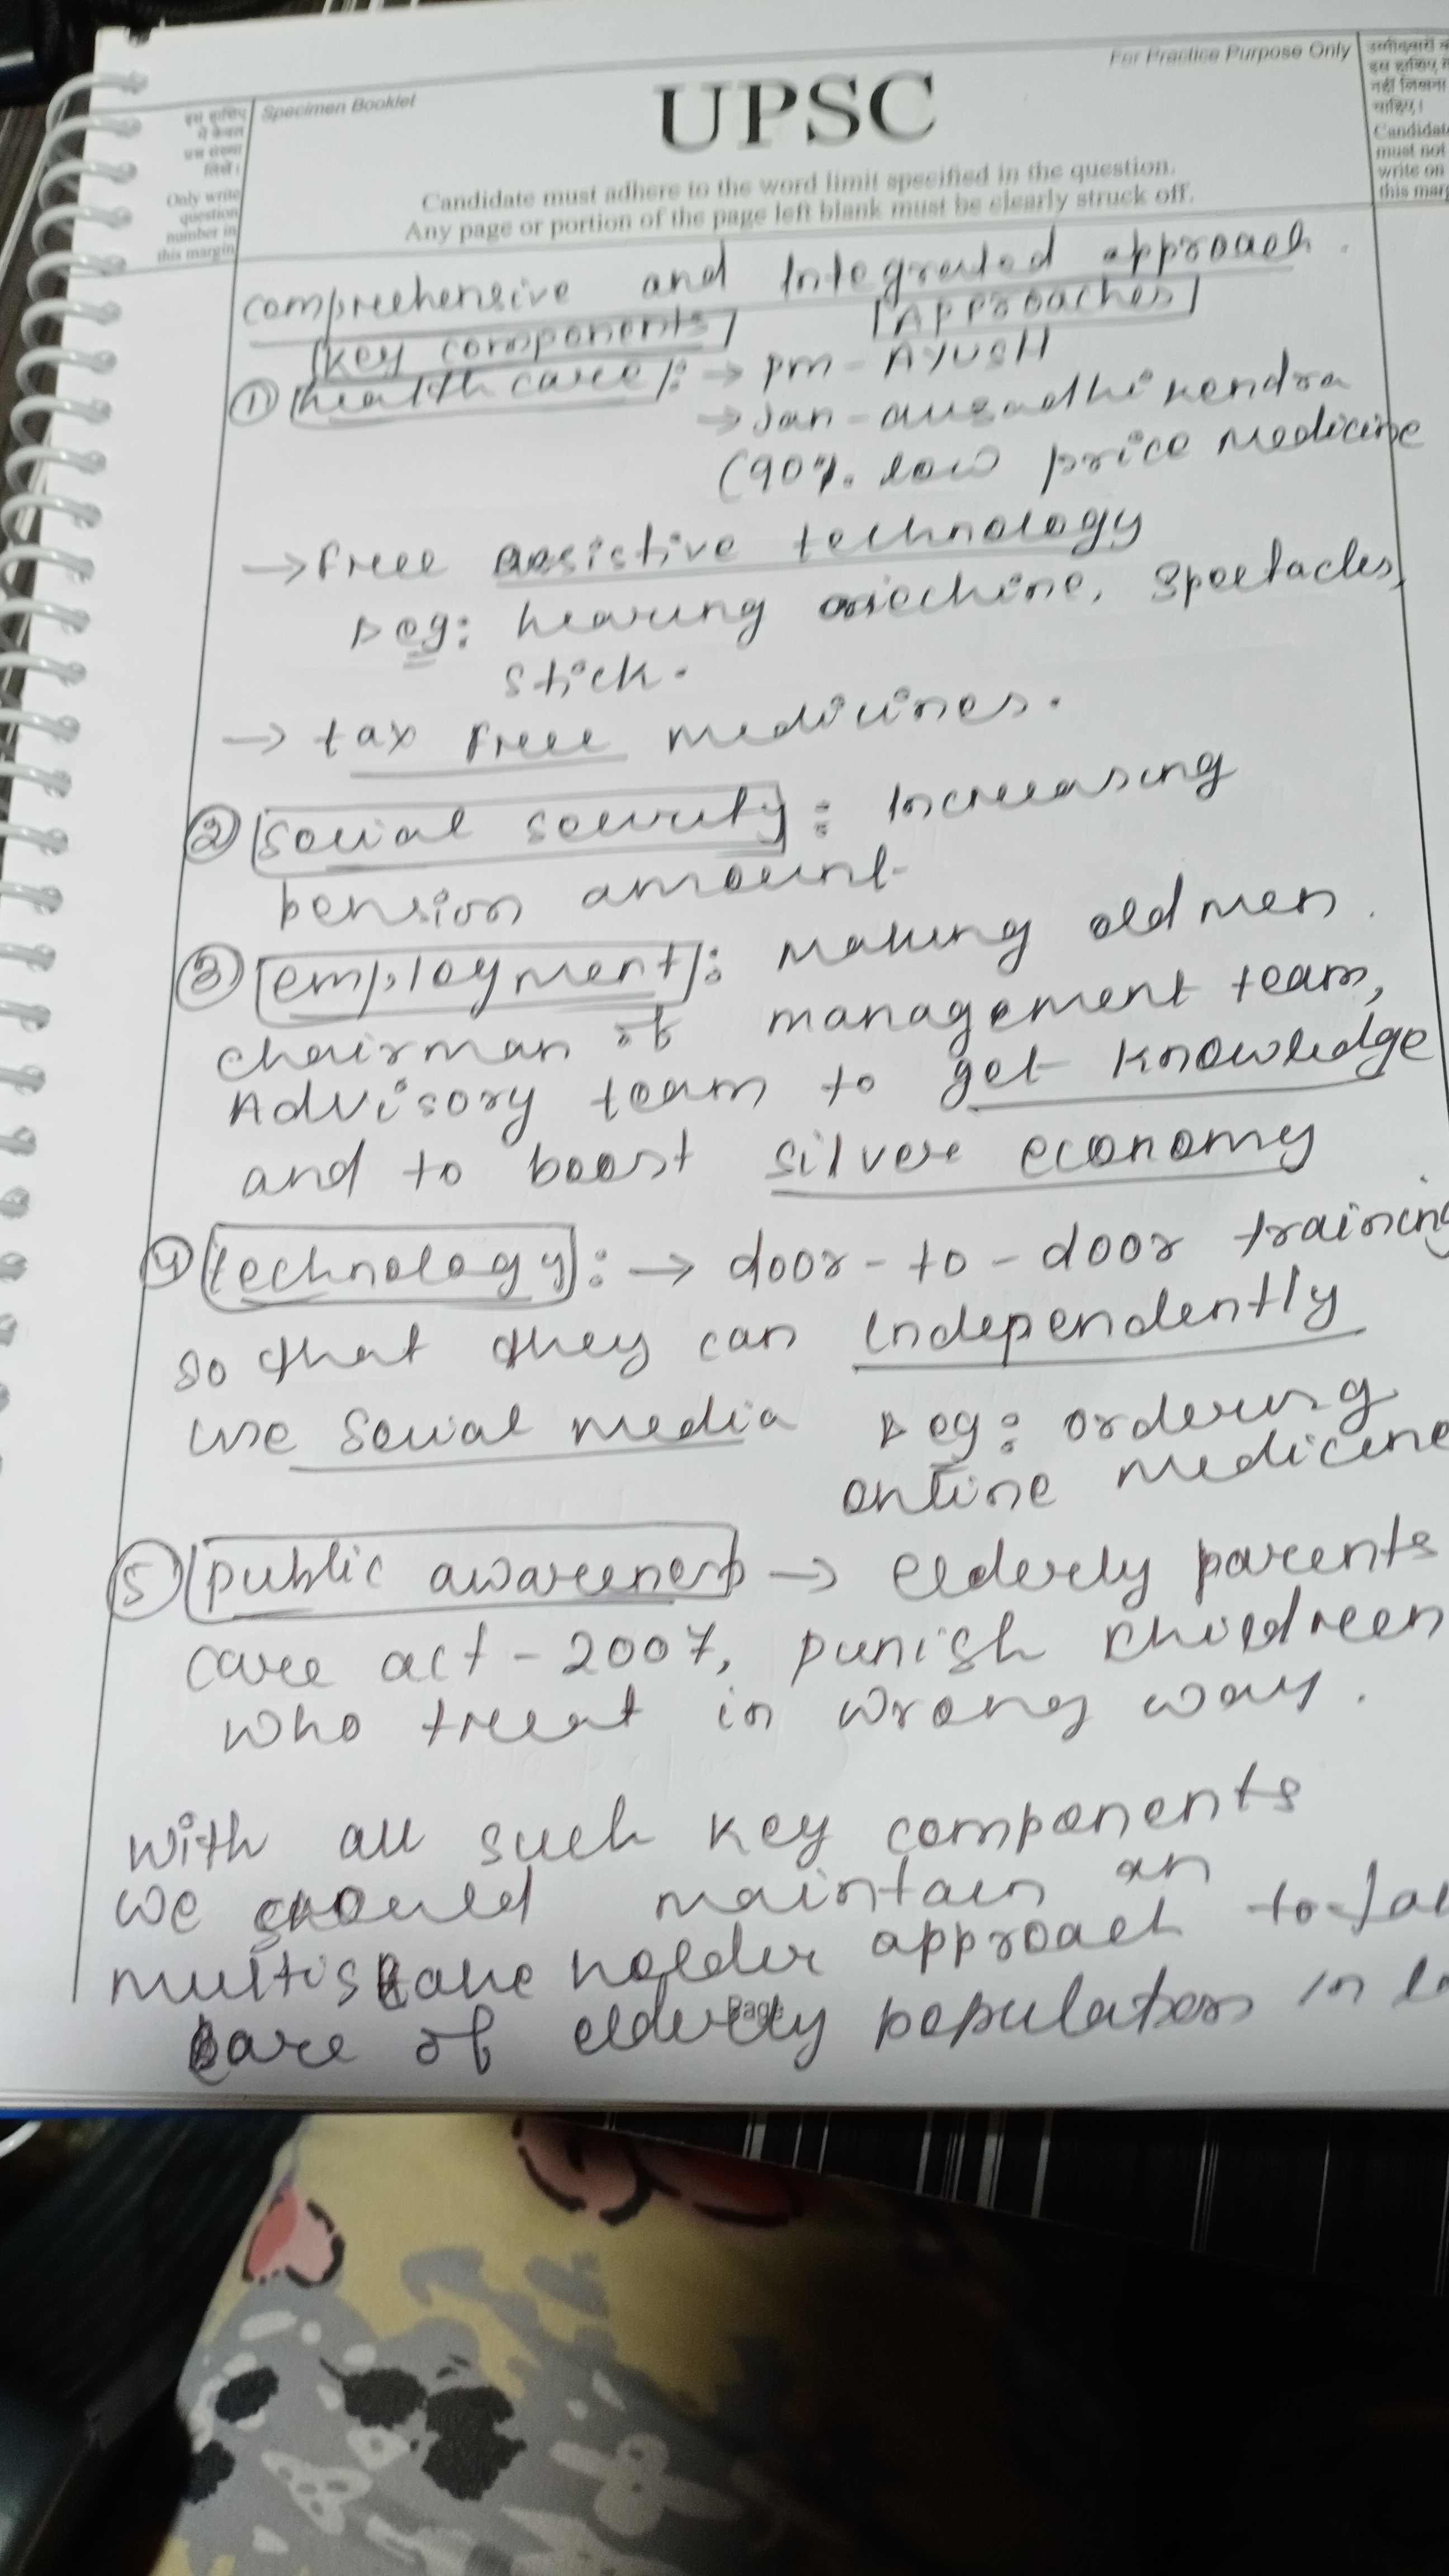 For Practice Purpose Only
Specimen Booklet
UPSC
इस हाशिए
में केवल
प्रश्न संख्या
लिखें।
Only write
question
number in
this margin
उम्मीदवारों
इस हाशिए
नहीं लिखना
चाहिए।
Candidat
must not
write on
this marg
Candidate must adhere to the word limit specified in the question.
Any page or portion of the page left blank must be clearly struck off.
comprehensive and Integrated approach.
[key components] [Approaches]
① [health care]: → PM - AYUSH
→ Jan - ausadhi kendra
(90% low price medicine
→ Free assistive technology
eg: hearing machine, spectacles,
stick.
→ tax free medicines.
② [social security]: Increasing
pension amount
③ [employment]: making old men
chairman of management team,
Advisory team to get knowledge
and to boost silver economy
④ [technology]: → door-to-door training
so that they can independently
use social media eg: ordering
online medicine
⑤ [public awareness → elderly parents
care act - 2007, punish children
who treat in wrong way.
with all such key components
we should maintain an
multistake holder approach to
care of elderly population in
Page